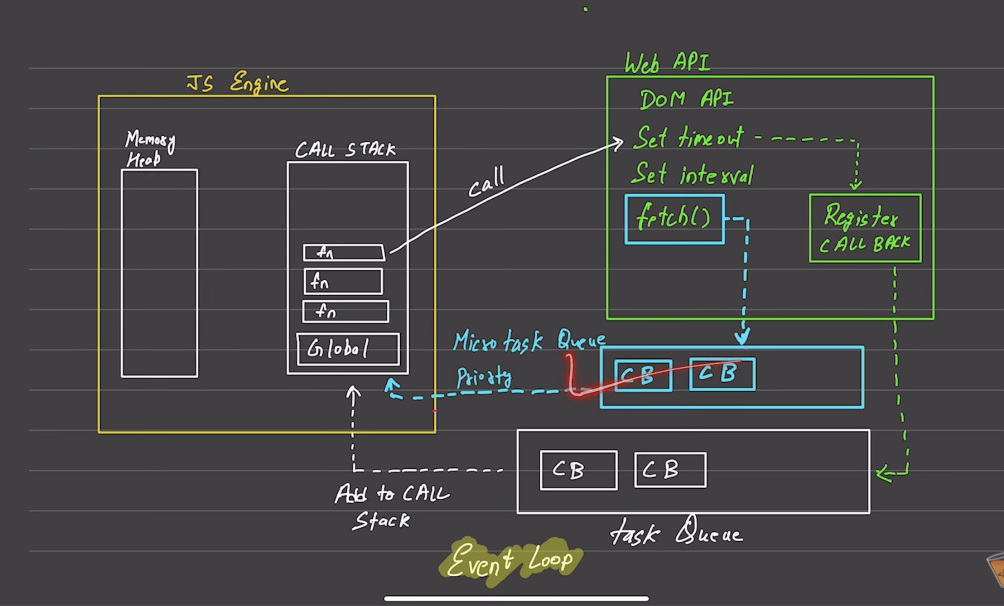 JS Engine
Memory
Heap
CALL STACK
fn
fn
fn
Global
call
Web API
DOM API
Set timeout
Set interval
fetch()
Register
CALL BACK
Micro task Queue
Priorty
CB
CB
CB
CB
task Queue
Add to CALL
Stack
Event Loop